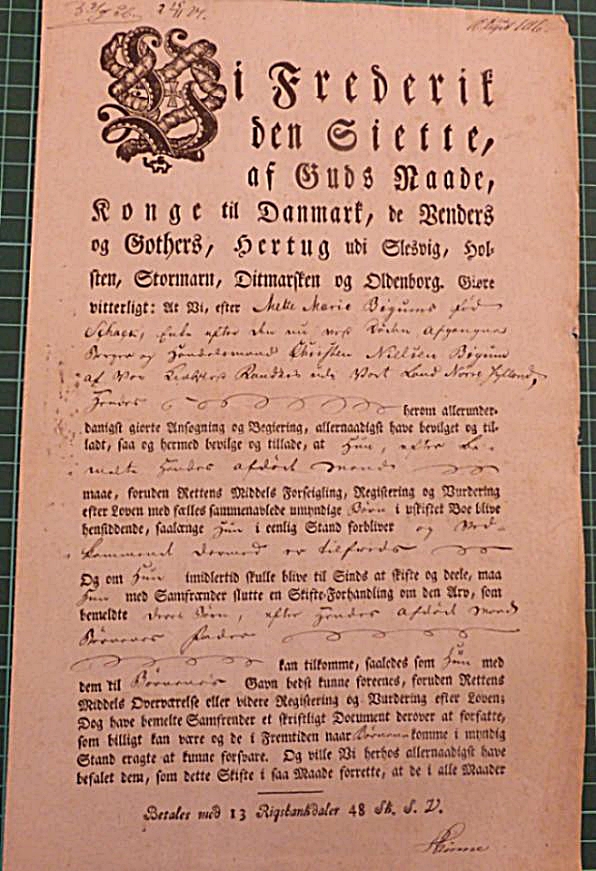 Vi Frederik
den Siette,
af Guds Naade,
Konge til Danmark, de Venders
og Gothers, Hertug udi Slesvig, Hol-
sten, Stormarn, Ditmarsken og Oldenborg. Giøre
vitterligt: At Vi, efter Mette Marie Bigums fød
Schack, Enke efter den nu ved Døden Afgangne
Borger og Handelsmand Christen Nielsen Bigum
af Vor Kiøbstad Randers udi Vort Land Nørre Jylland,
Hendes herom allerunder-
danigst giorte Ansøgning og Begiering, allernaadigst have bevilget og til-
ladt, saa og hermed bevilge og tillade, at Hun, efter be-
meldte Hendes afdøde Mands
maae, foruden Rettens Middels Forseigling, Registering og Vurdering
efter Loven med fælles sammenavlede umyndige Børn i uskiftet Boe blive
hensiddende, saalænge Hun i eenlig Stand forbliver og Ved-
kommende dermed er tilfreds
Og om Hun imidlertid skulle blive til Sinds at skifte og deele, maa
Hun med Samfrænder slutte en Skifte-Forhandling om den Arv, som
bemeldte deres Børn, efter Hendes afdøde Mand
Børnenes Fader
kan tilkomme, saaledes som Hun med
dem til Børnenes Gavn bedst kunne foreenes, foruden Rettens
Middels Overværelse eller videre Registering og Vurdering efter Loven;
Dog have bemelte Samfrender et skriftligt Document derover at forfatte,
som billigt kan være og de i Fremtiden naar Børnene komme i myndig
Stand eragte at kunne forsvare. Og ville Vi herhos allernaadigst have
befalet dem, som dette Skifte i saa Maade forrette, at de i alle Maader
Betales med 13 Rigsbankdaler 48 Sk. S. V.